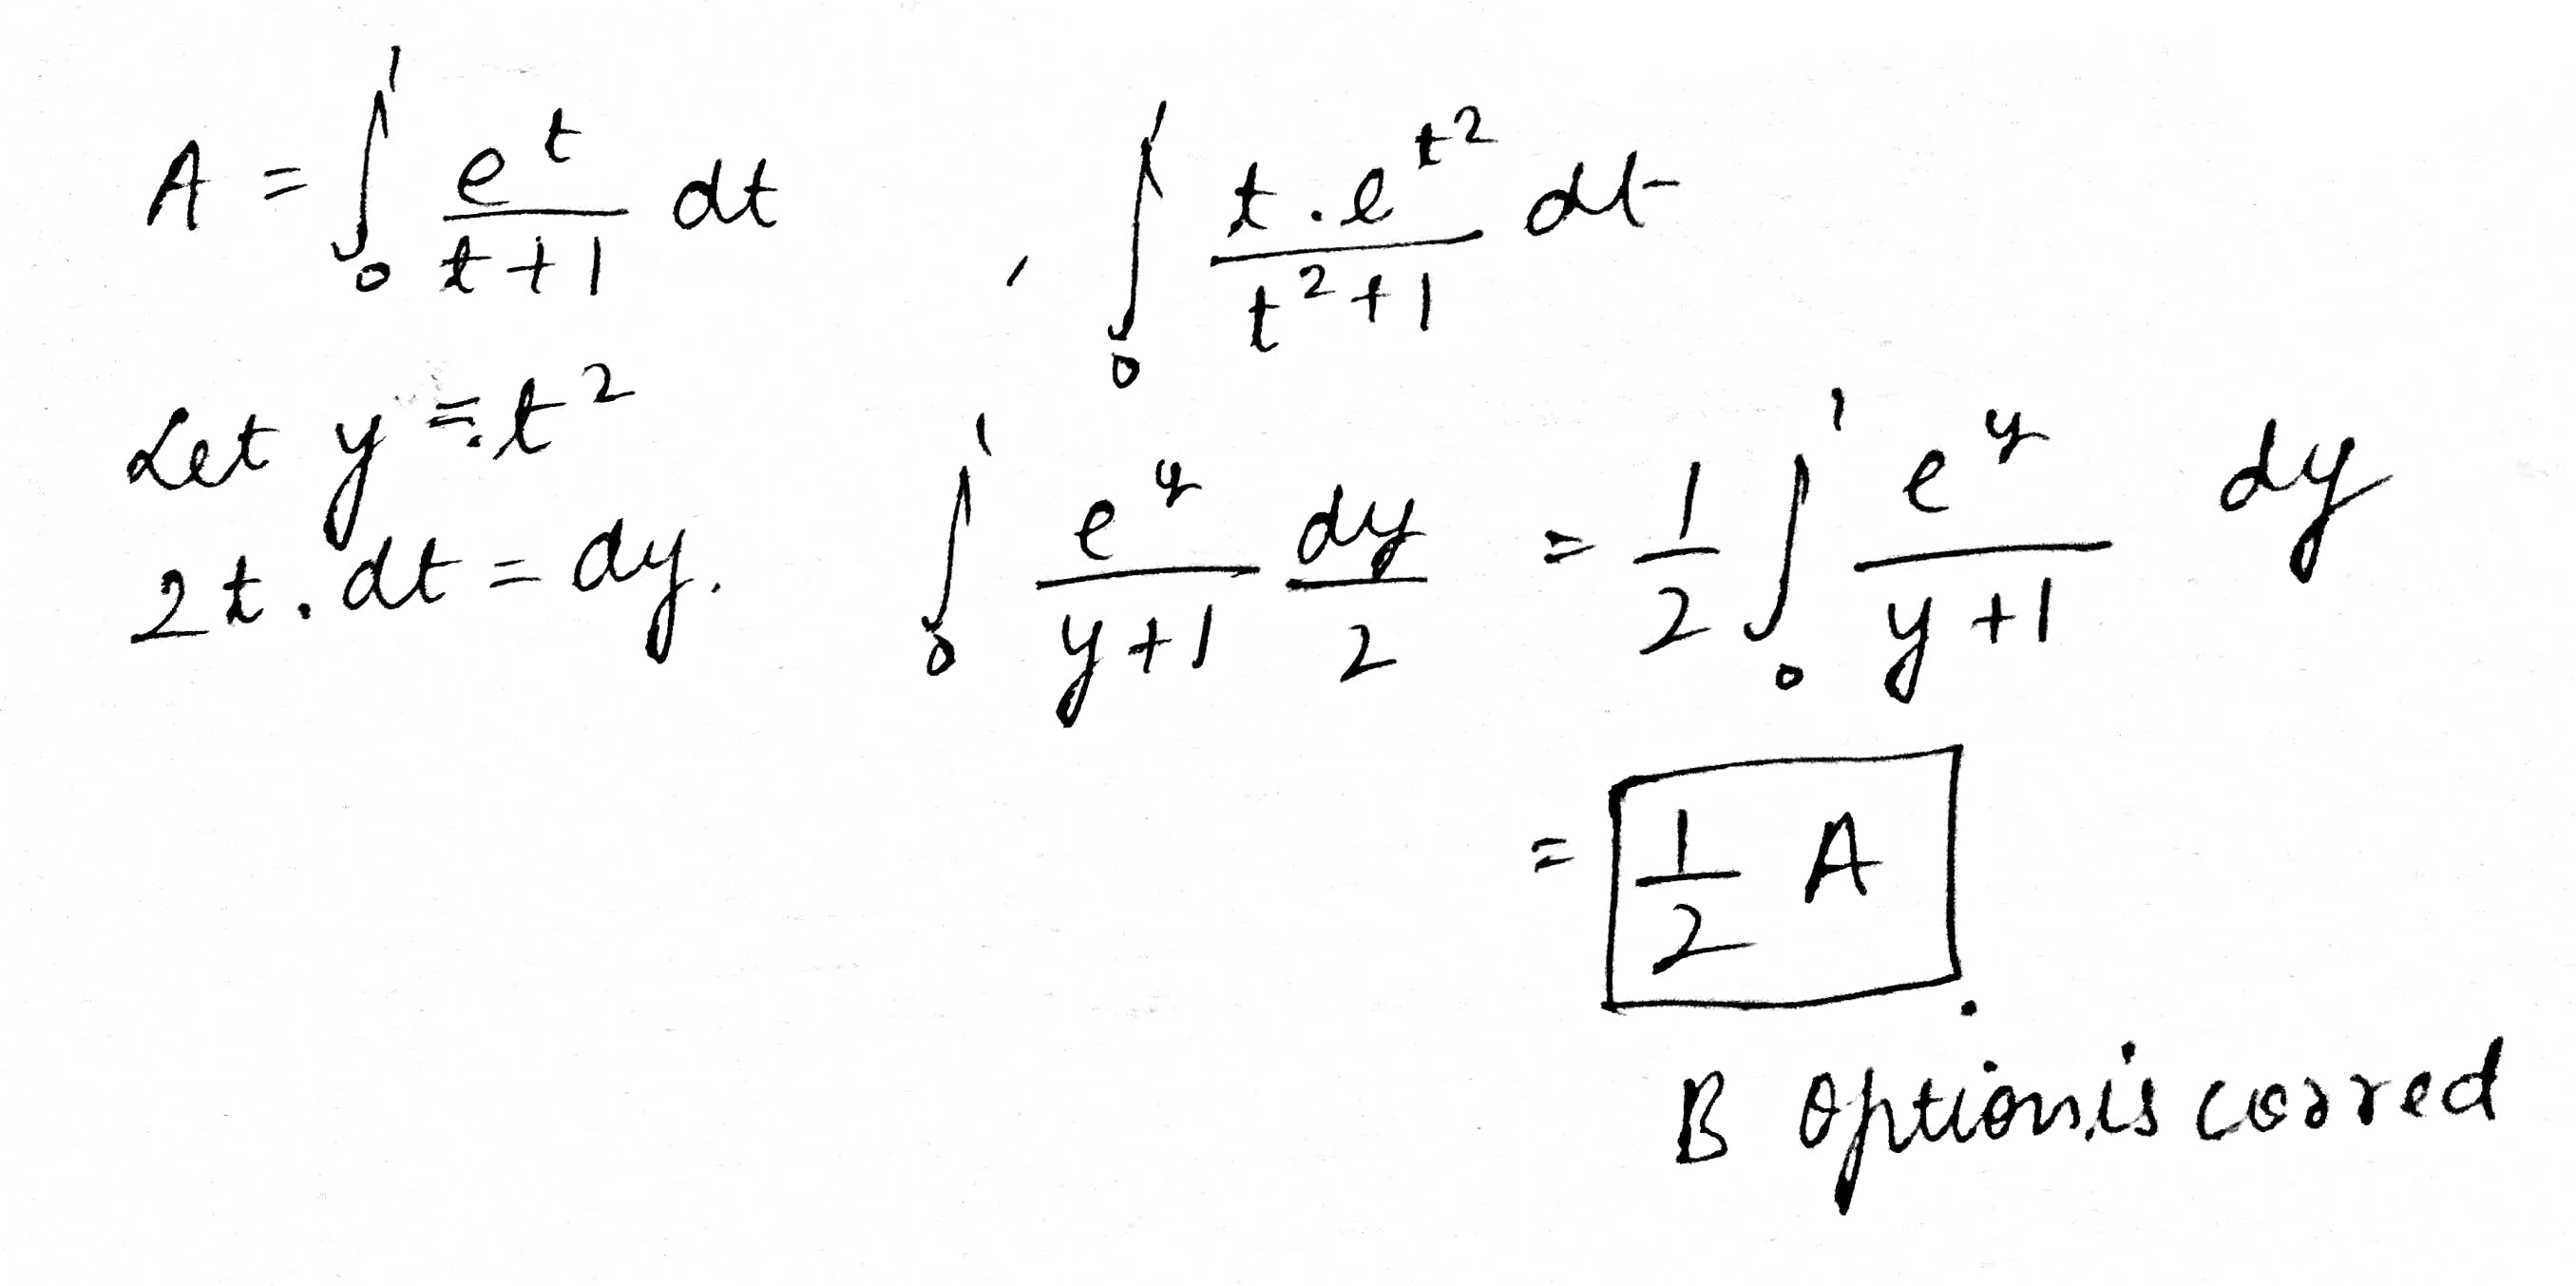 A = ∫₀¹ e^t/(t+1) dt , ∫₀¹ t.e^(t²)/(t²+1) dt
Let y = t²
2t.dt = dy. ∫₀¹ e^y/(y+1) dy/2 = 1/2 ∫₀¹ e^y/(y+1) dy
= 1/2 A.
B option is corred